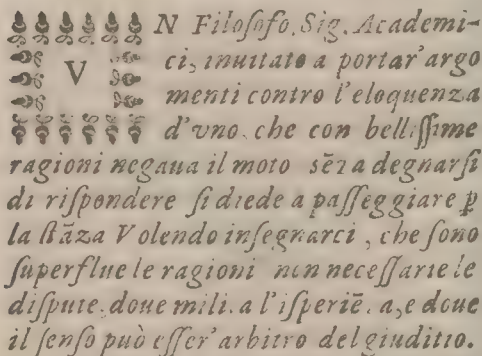 VN Filoſofo. Sig. Academi-
ci, inuitato a portar'argo
menti contro l'eloquenza
d'vno. che con belliſſime
ragioni negaua il moto sēza degnarſi
di riſpondere ſi diede a paſſeggiare ꝑ
la ſtāza Volendo inſegnarci, che ſono
ſuperflue le ragioni non neceſſarie le
diſpute, doue milita l'iſperiēza, e doue
il ſenſo può eſſer'arbitro del giuditio.